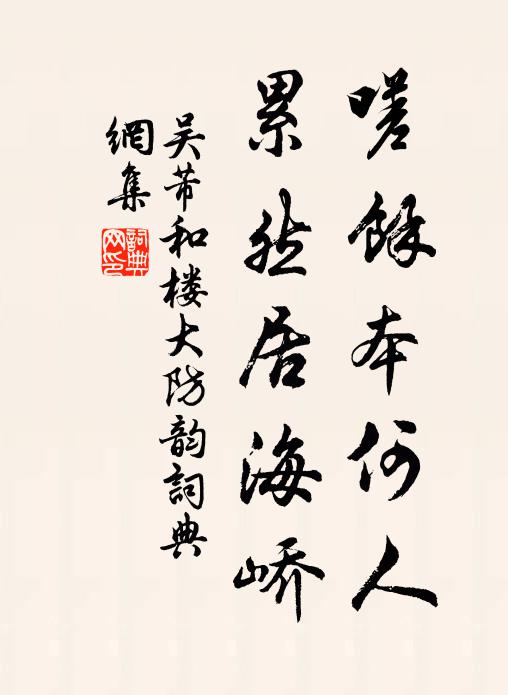 嗟餘本何人
累然居海峤
吴芾和楼大防韵詞典
網集
詞典
网印